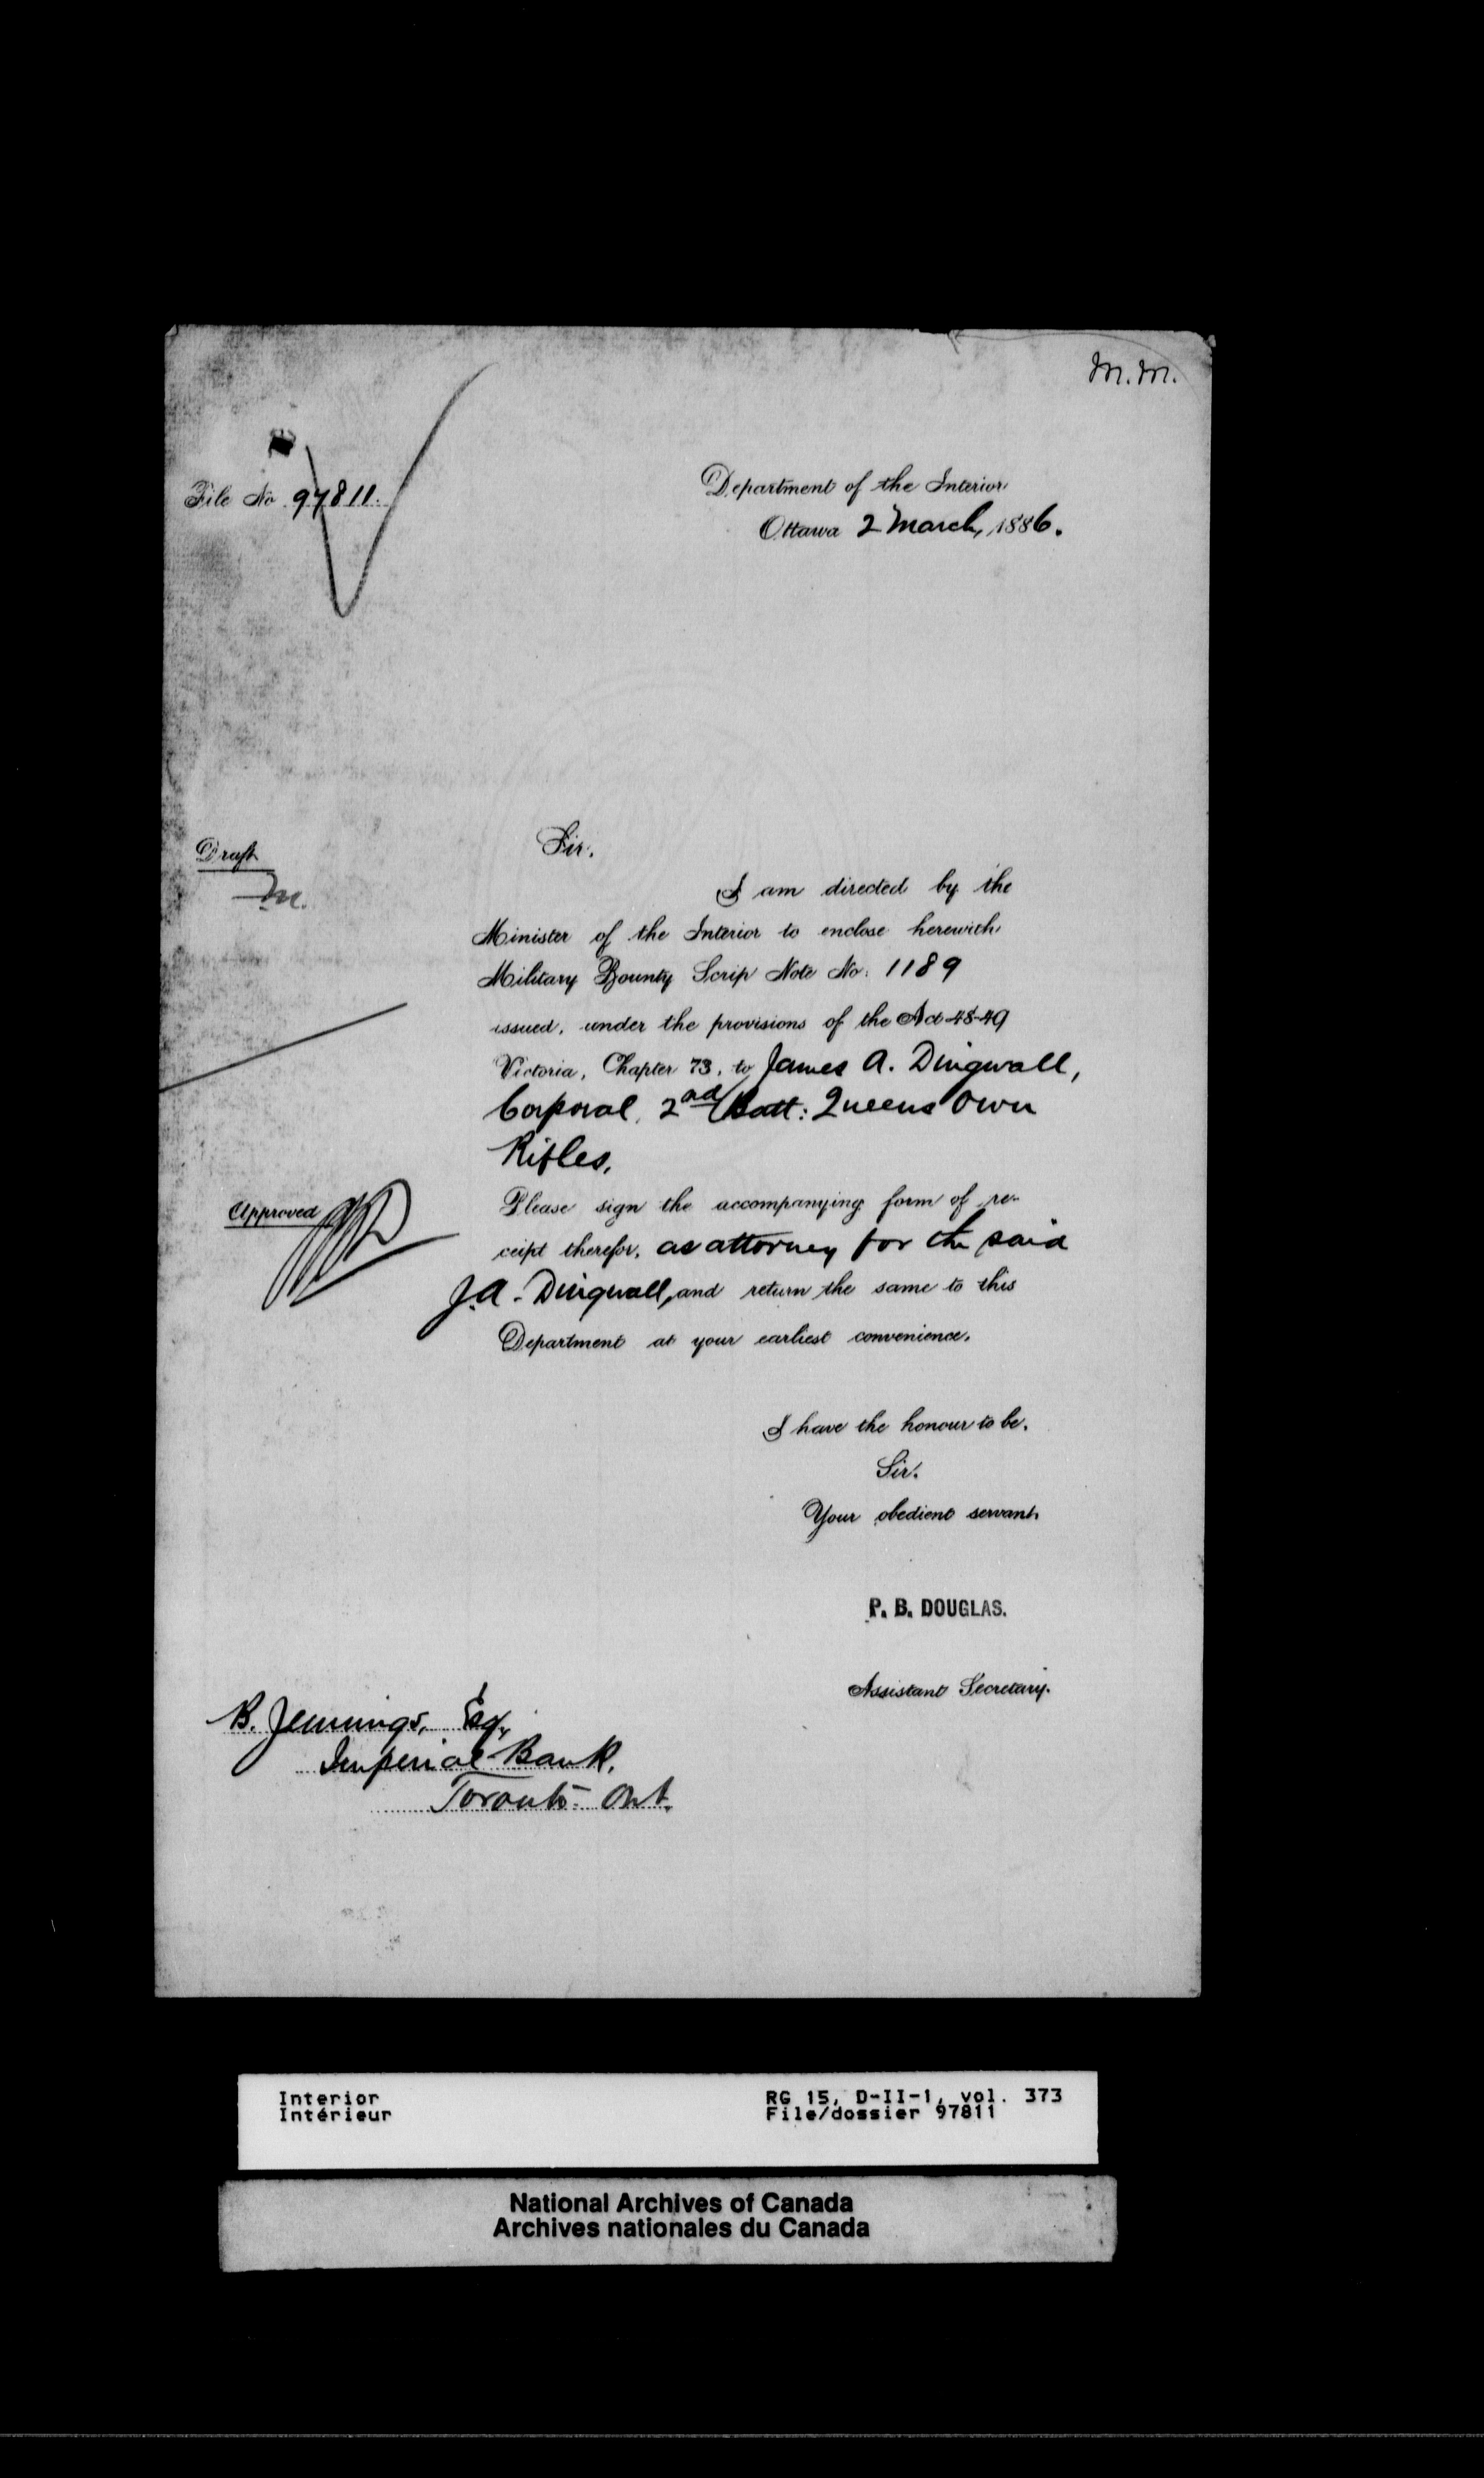 M.M.
File No 97811.
Department of the Interior
Ottawa 2 March, 1886.
Draft
M.
Sir,
I am directed by the
Minister of the Interior to enclose herewith
Military Bounty Scrip Note No. 1189
issued, under the provisions of the Act 48-49
Victoria, Chapter 73, to James A. Dingwall,
Corporal, 2nd Batt: Queens Own
Rifles.
Approved
Please sign the accompanying form of re-
ceipt therefor, as attorney for the said
J.A. Dingwall, and return the same to this
Department at your earliest convenience.
I have the honour to be,
Sir,
Your obedient servant,
P. B. DOUGLAS.
Assistant Secretary.
B. Jennings, Esq,
Imperial Bank,
Toronto- Ont.
Interior
Intérieur
RG 15, D-II-1, vol. 373
File/dossier 97811
National Archives of Canada
Archives nationales du Canada